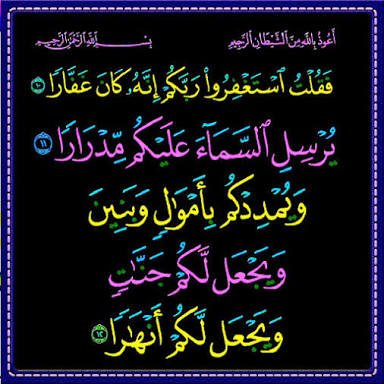 أَعُوذُ بِاللَّهِ مِنَ الشَّيْطَانِ الرَّجِيمِ بِسْمِ اللَّهِ الرَّحْمَنِ الرَّحِيمِ
فَقُلْتُ ٱسْتَغْفِرُوا۟ رَبَّكُمْ إِنَّهُۥ كَانَ غَفَّارًا ١٠
يُرْسِلِ ٱلسَّمَآءَ عَلَيْكُم مِّدْرَارًا ١١
وَيُمْدِدْكُم بِأَمْوَٰلٍ وَبَنِينَ
وَيَجْعَل لَّكُمْ جَنَّٰتٍ
وَيَجْعَل لَّكُمْ أَنْهَٰرًا ١٢